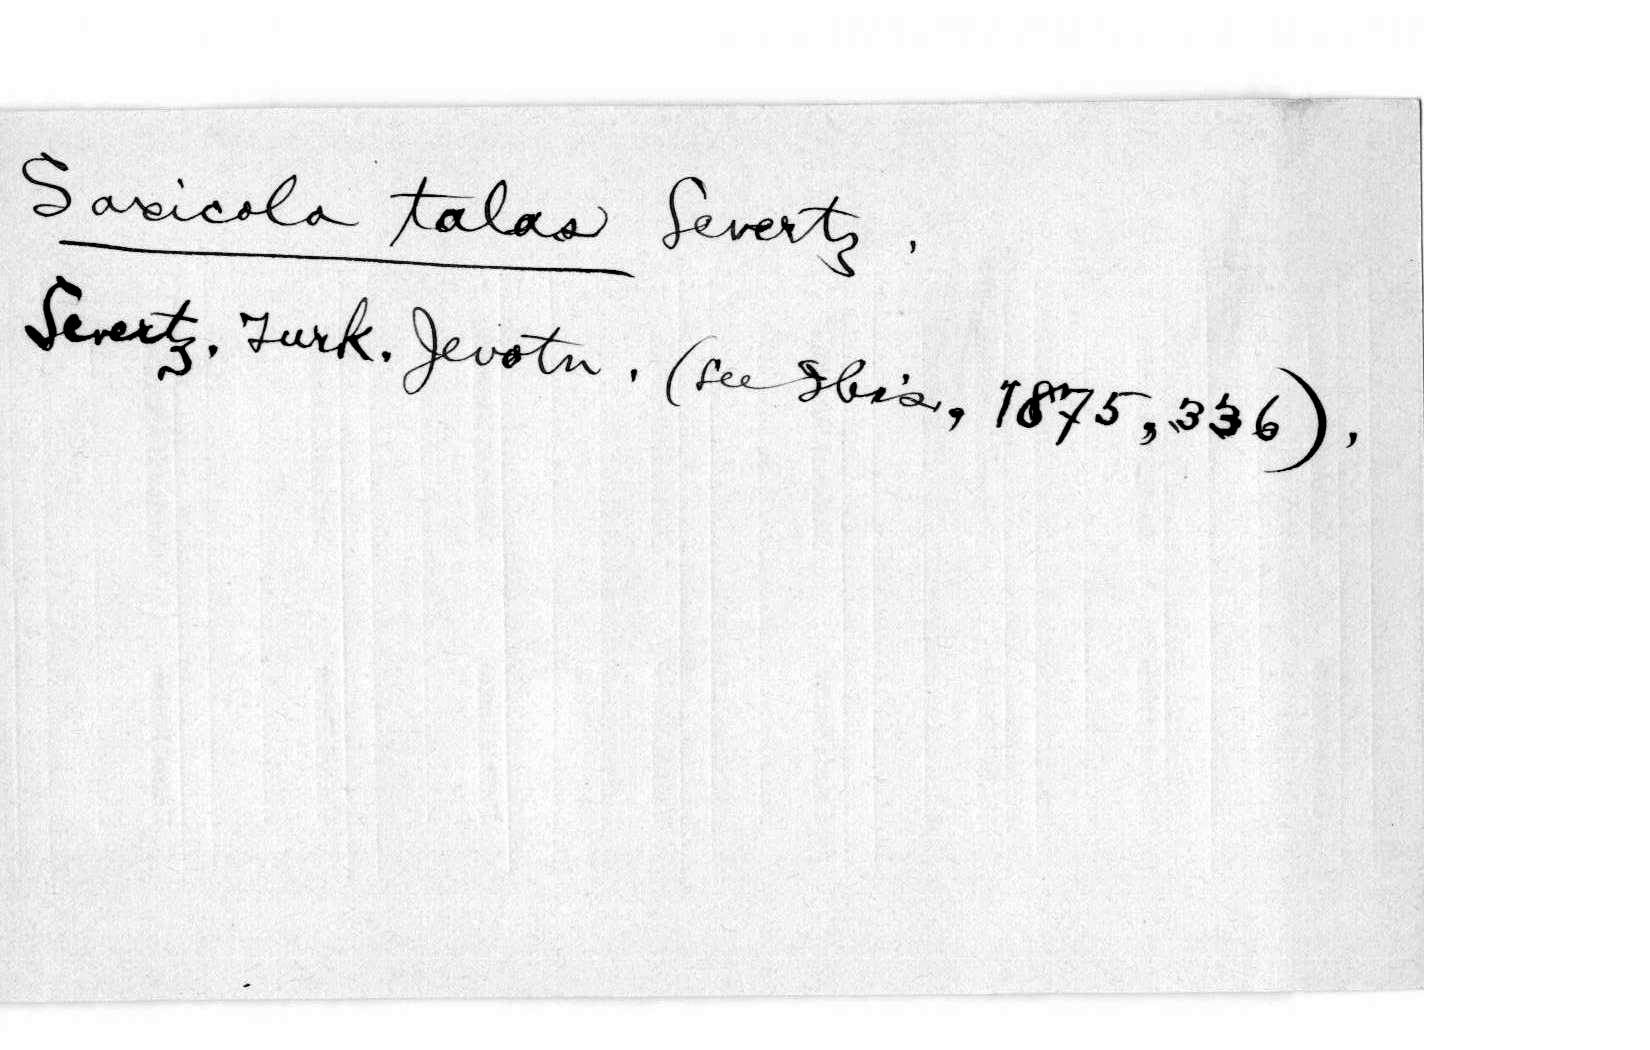 Saxicola talas Severtz.
Severtz. Turk. Jevotn. (see Ibis, 1875, 336).